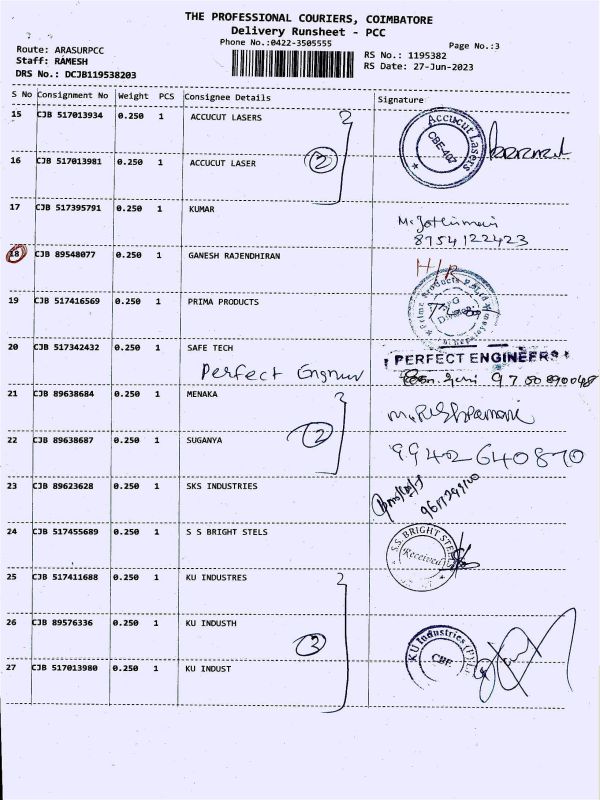 THE PROFESSIONAL COURIERS, COIMBATORE
Delivery Runsheet - PCC
Phone No.:0422-3505555
Page No.:3
Route: ARASURPCC
Staff: RAMESH
DRS No.: DCJB119538203
RS No.: 1195382
RS Date: 27-Jun-2023
S No Consignment No Weight PCS Consignee Details Signature
15 CJB 517013934 0.250 1 ACCUCUT LASERS
Accucut Lasers
CBE-407
16 CJB 517013981 0.250 1 ACCUCUT LASER
2
17 CJB 517395791 0.250 1 KUMAR
8754122423
18 CJB 89548077 0.250 1 GANESH RAJENDHIRAN
H/R
19 CJB 517416569 0.250 1 PRIMA PRODUCTS
20 CJB 517342432 0.250 1 SAFE TECH
PERFECT ENGINEERS
Perfect
21 CJB 89638684 0.250 1 MENAKA
22 CJB 89638687 0.250 1 SUGANYA
2
9942640870
23 CJB 89623628 0.250 1 SKS INDUSTRIES
24 CJB 517455689 0.250 1 S S BRIGHT STELS
S.S. BRIGHT
Received
25 CJB 517411688 0.250 1 KU INDUSTRES
26 CJB 89576336 0.250 1 KU INDUSTH
3
KU Industries
CBE
27 CJB 517013980 0.250 1 KU INDUST